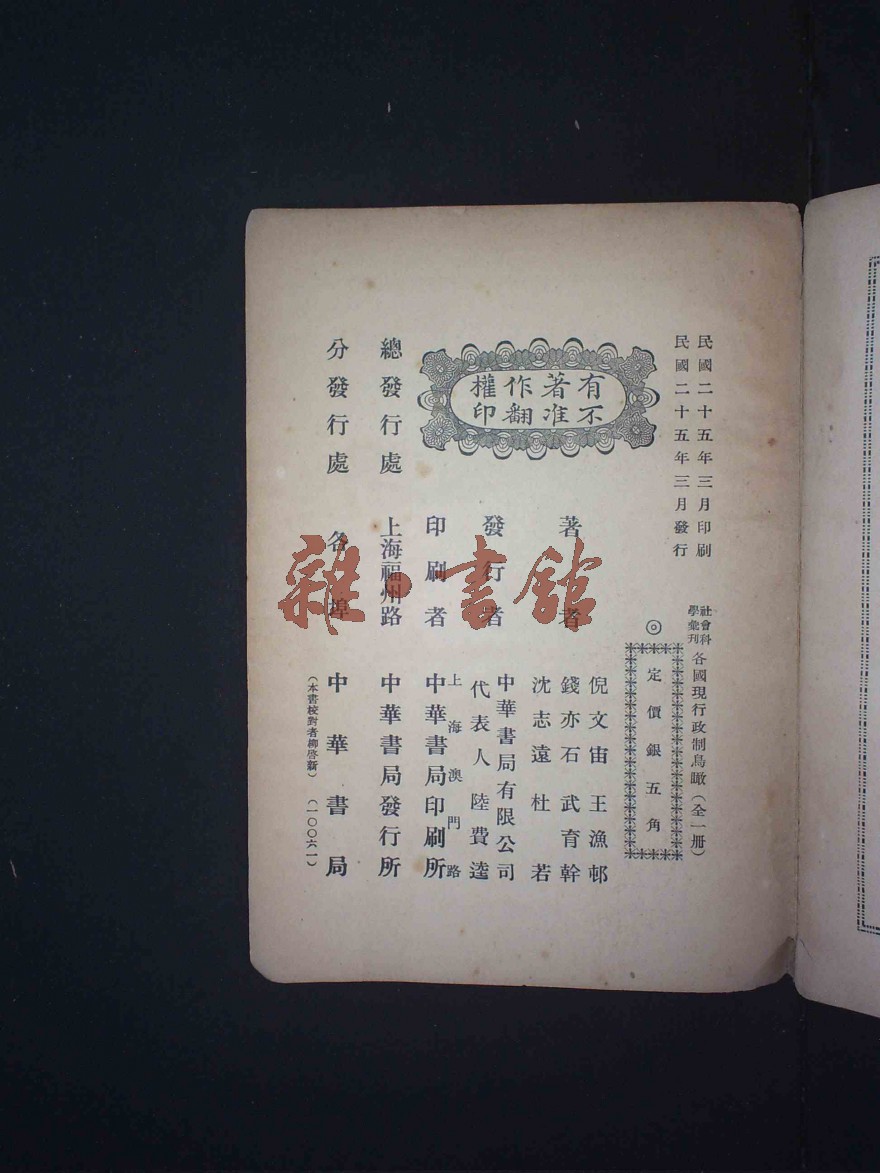 民國二十五年三月印刷
民國二十五年三月發行
社會科
學彙刊
各國現行政制鳥瞰（全一冊）
◎
定價銀五角
有著作權
不准翻印
著者
倪文宙 王漁邨
錢亦石 武育幹
沈志遠 杜若
發行者
中華書局有限公司
代表人 陸費逵
印刷者
上海澳門路
中華書局印刷所
總發行處
上海福州路
中華書局發行所
分發行處
各埠
中華書局
（本書校對者柳啓新）
（一〇〇六一）
雜·書館